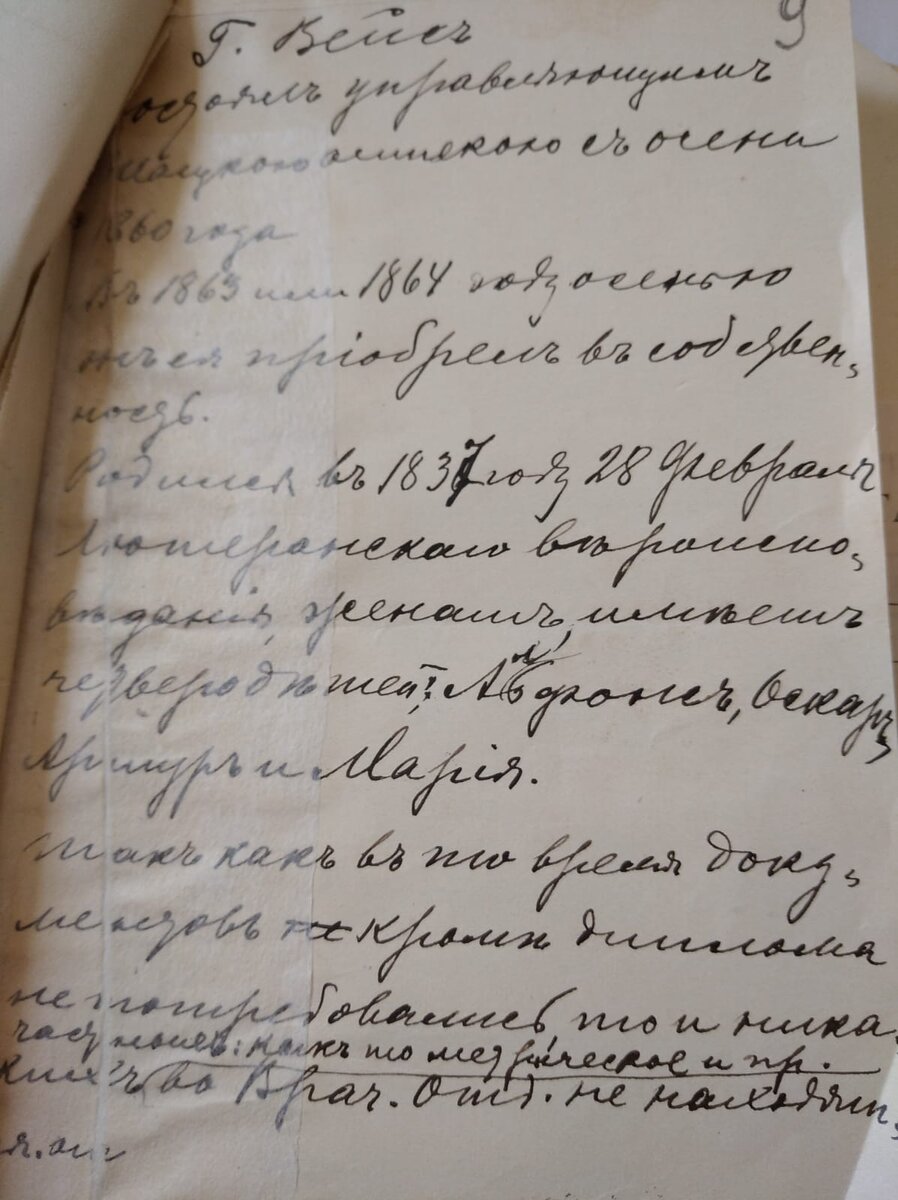 9
Г. Вейсъ
состоялъ управляющимъ
аптекою съ осени
1860 года
Въ 1863 или 1864 году осенью
пріобрелъ въ собствен,
ность.
Родился въ 1837 году 28 Февраля
Лютеранскаго вѣроиспо,
вѣданія, женатъ, имѣетъ
четверо дѣтей: Альфонсъ, Оскаръ,
Артуръ и Марія.
Такъ какъ въ то время доку,
ментовъ кромѣ диплома
не потребовались, то и ника,
какъ то метрическое и пр.
кихъ во Врач. Отд. не находят,
ся.